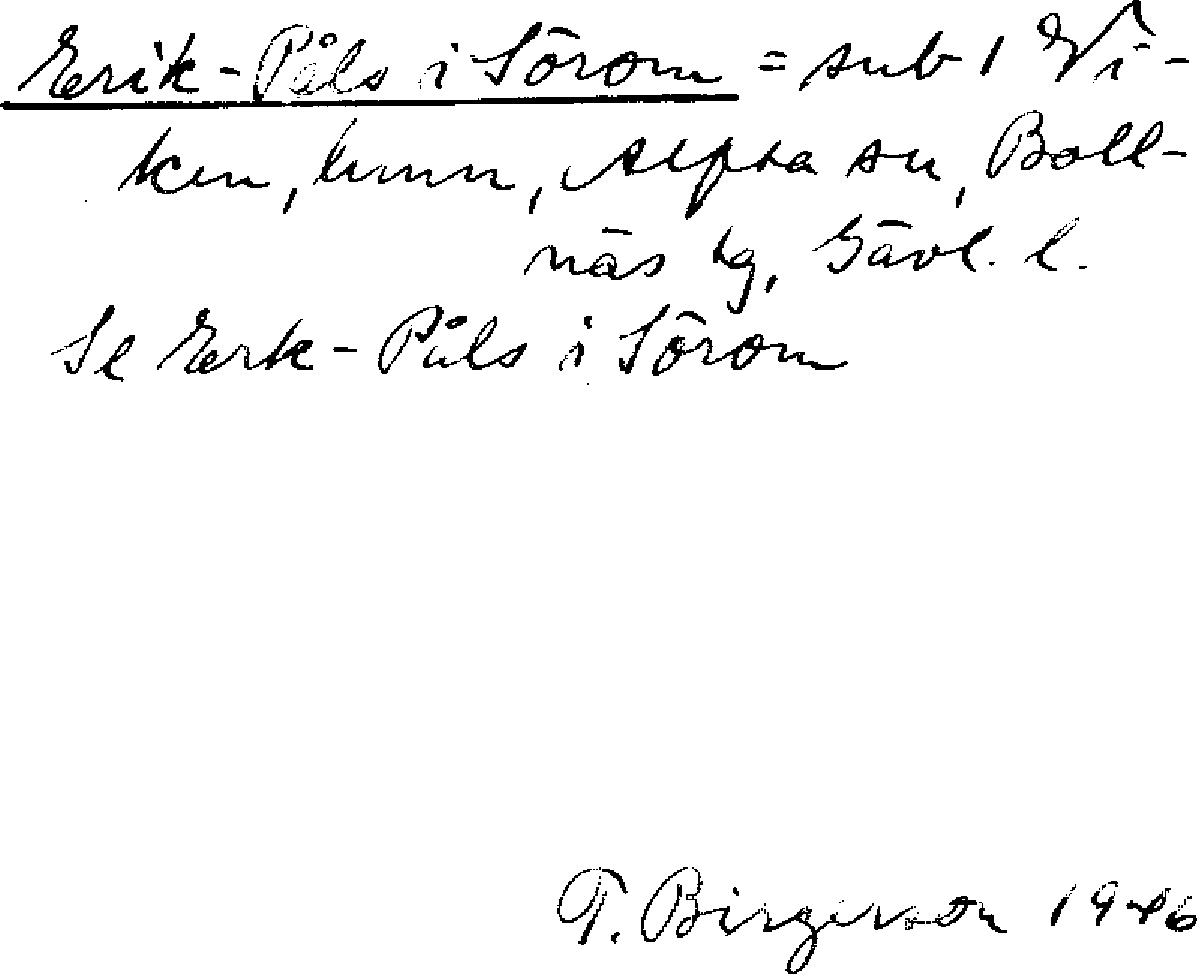 Erik-Påls i Sörom = sub 1 Vi-
ken, hmn, Alfta sn, Boll-
näs tg, Gävl. l.
Se Erk-Påls i Sörom
T. Birgerson 1946